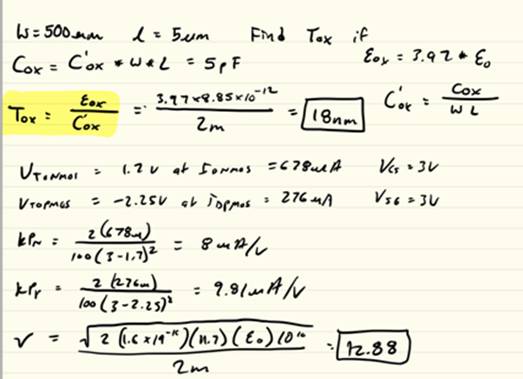 W=500um l=5um Find Tox if
Cox = C'ox * W * L = 5pF Eox = 3.97 * E₀
Tox = Eox / C'ox = 3.97 x 8.85 x 10⁻¹² / 2m = 18nm C'ox = Cox / W L
VTONMOS = 1.2V at IDNMOS = 678uA VGS = 3V
VTOPMOS = -2.25V at IDPMOS = 276uA VSG = 3V
KPN = 2(678u) / 100(3-1.7)² = 8uA/V
KPP = 2(276u) / 100(3-2.25)² = 9.81uA/V
γ = √2(1.6x19⁻¹⁹)(11.7)(E₀)10¹⁶ / 2m = 12.88